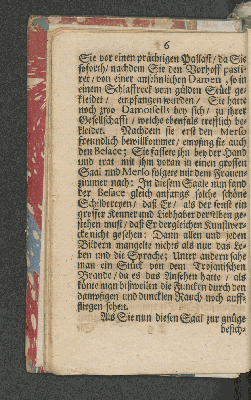 6
Sie vor einen prächtigen Pallast / da Sie
soforth / nachdem Sie den Vorhoff passi-
ret / von einer ansehnlichen Damen / so in
einem Schlaffrock vom gülden Stück ge-
kleidet / empfangen wurden / Sie hatte
noch zwo Damoisells bey sich / zu ihrer
Gesellschafft / welche ebenfals trefflich be-
kleidet. Nachdem sie erst den Merlo
freundlich bewillkommet / empfing sie auch
den Belace; Sie fassete ihn bey der Hand
und trat mit ihm voran in einen grossen
Saal und Merlo folgete mit dem Frauen-
zimmer nach: In diesem Saale nun fand
der Belace gleich anfangs solche schöne
Schildereyen / daß Er / als der sonst ein
grosser Kenner und Liebhaber derselben ge-
stehen must / daß Er dergleichen Kunstwer-
cke nicht gesehen: Dann allen und jeden
Bildern mangelte nichts als nur das Le-
ben und die Sprache; Unter andern sahe
man ein Stück von dem Trojanischen
Brande / da es das Ansehen hatte / als
könte man bisweilen die Funcken durch den
dampffigen und duncklen Rauch noch auff-
fliegen sehen.
Als Sie nun diesen Saal zur gnüge
besich-